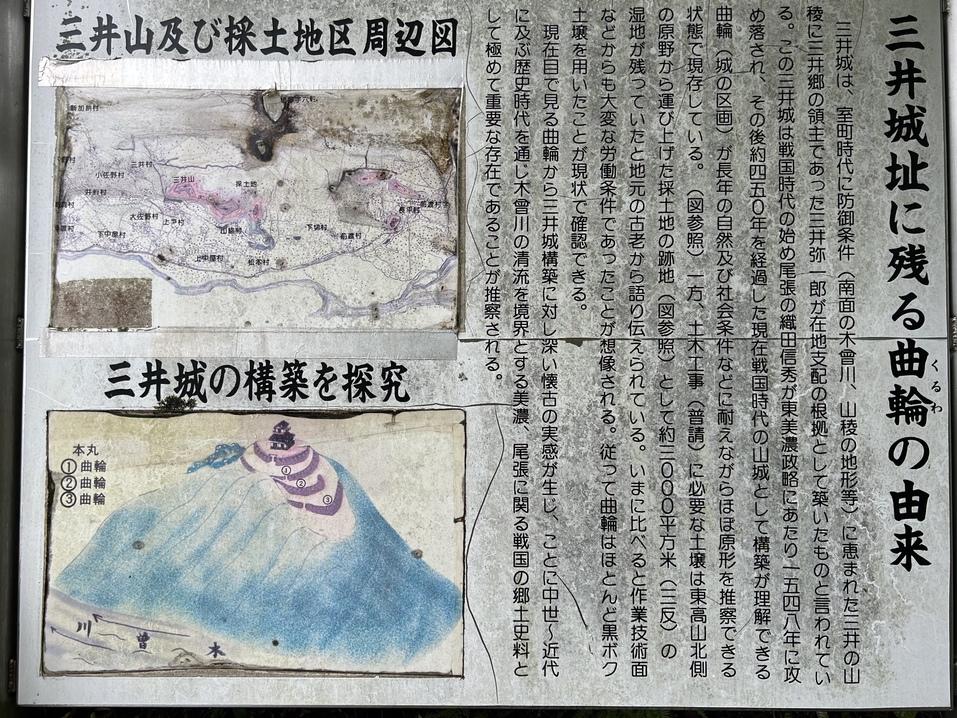 三井城址に残る曲輪の由来
くるわ
三井城は、室町時代に防御条件（南面の木曾川、山稜の地形等）に恵まれた三井の山
稜に三井郷の領主であった三井弥一郎が在地支配の根拠として築いたものと言われてい
る。この三井城は戦国時代の始め尾張の織田信秀が東美濃政略にあたり一五四八年に攻
め落され、その後約四五〇年を経過した現在戦国時代の山城として構築が理解できる
曲輪（城の区画）が長年の自然及び社会条件などに耐えながらほぼ原形を推察できる
状態で現存している。（図参照）一方、土木工事（普請）に必要な土壌は東高山北側
の原野から運び上げた採土地の跡地（図参照）として約三〇〇〇平方米（三反）の
湿地が残っていたと地元の古老から語り伝えられている。いまに比べると作業技術面
などからも大変な労働条件であったことが想像される。従って曲輪はほとんど黒ボク
土壌を用いたことが現状で確認できる。
現在目で見る曲輪から三井城構築に対し深い懐古の実感が生じ、ことに中世〜近代
に及ぶ歴史時代を通じ木曾川の清流を境界とする美濃、尾張に関る戦国の郷土史料と
して極めて重要な存在であることが推察される。
三井山及び採土地区周辺図
新加納村
三井村
小佐野村
井前村
三井山
採土地
大佐野村
上戸村
下中屋村
山脇村
上中屋村
松本村
下切村
前渡村
長平村
三井城の構築を探究
本丸
①曲輪
②曲輪
③曲輪
①
②
③
木曾川